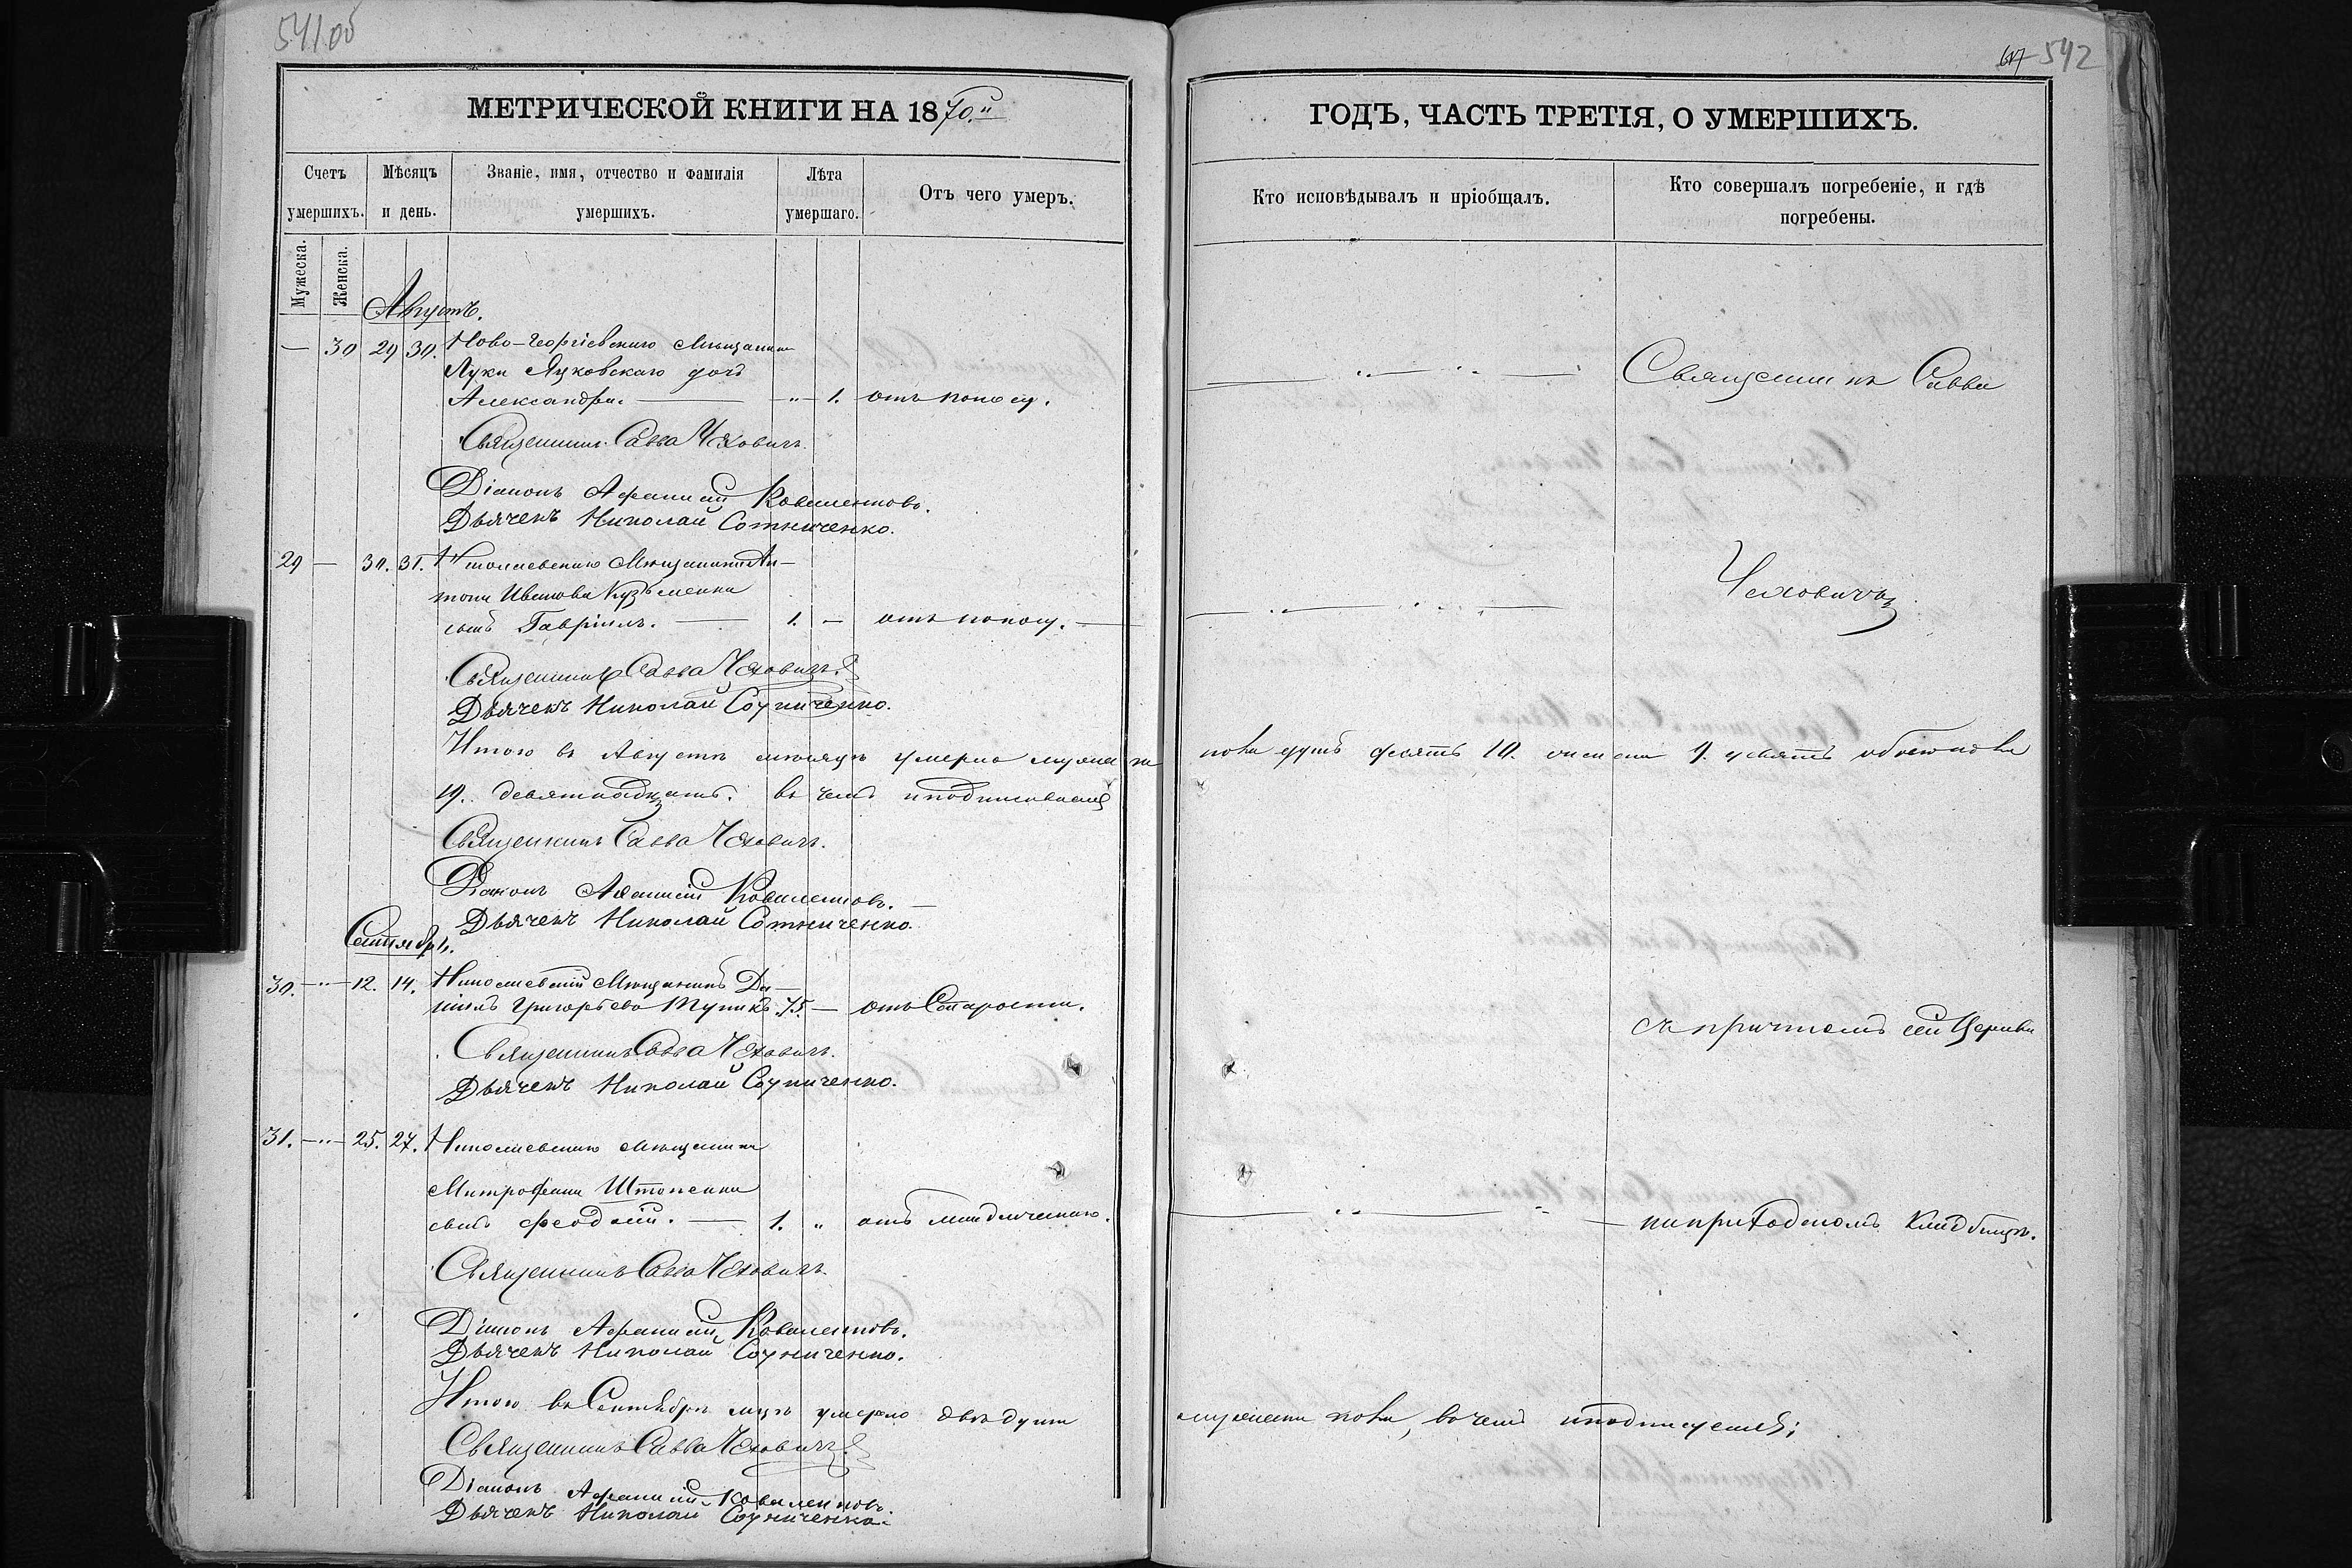 541об
МЕТРИЧЕСКОЙ КНИГИ НА 1870.й
Счетъ умершихъ.
Мѣсяцъ и день.
Званіе, имя, отчество и фамилія умершихъ.
Лѣта умершаго.
Отъ чего умеръ.
Мужеска.
Женска.
Августъ.
— 30 29 30. Ново-Георгіевскаго Мѣщанина
Луки Яцковскаго дочь
Александра. — " — 1. отъ поносу.
Священникъ Савва Чеховичъ.
Діаконъ Афанасій Коваленковъ.
Дьячекъ Николай Сотниченко.
29 — 30. 31. Николаевскаго Мѣщанина Ан-
тона Иванова Кузьменка
сынъ Гавріилъ. — 1. — отъ поносу. —
Священникъ Савва Чеховичъ.
Дьячекъ Николай Сотниченко.
Итого въ Августѣ мѣсяцѣ умерло мужеска
19. девятнадцать. въ чемъ и подписываемся
Священникъ Савва Чеховичъ.
Діаконъ Афанасій Коваленковъ. —
Дьячекъ Николай Сотниченко.
Сентябрь.
30. — " — 12. 14. Николаевскій Мѣщанинъ Да-
ніилъ Григорьевъ Тупикъ. 75. — отъ Старости.
Священникъ Савва Чеховичъ.
Дьячекъ Николай Сотниченко.
31. — " — 25. 27. Николаевскаго Мѣщанина
Митрофана Штопенка
сынъ Феодосій. — 1. " отъ младенческаго.
Священникъ Савва Чеховичъ.
Діаконъ Афанасій Коваленковъ.
Дьячекъ Николай Сотниченко.
Итого въ Сентябрѣ мцѣ умерло двѣ души
Священникъ Савва Чеховичъ
Діаконъ Афанасій Коваленковъ.
Дьячекъ Николай Сотниченко.
542
ГОДЪ, ЧАСТЬ ТРЕТІЯ, О УМЕРШИХЪ.
Кто исповѣдывалъ и пріобщалъ.
Кто совершалъ погребеніе, и гдѣ погребены.
Священникъ Савва
Чеховичъ
пола душъ десять 10. женска 9. девять обоего пола
съ причтомъ сей Церкви
на приходскомъ кладбищѣ.
мужеска пола, въ чемъ и подписуемся;